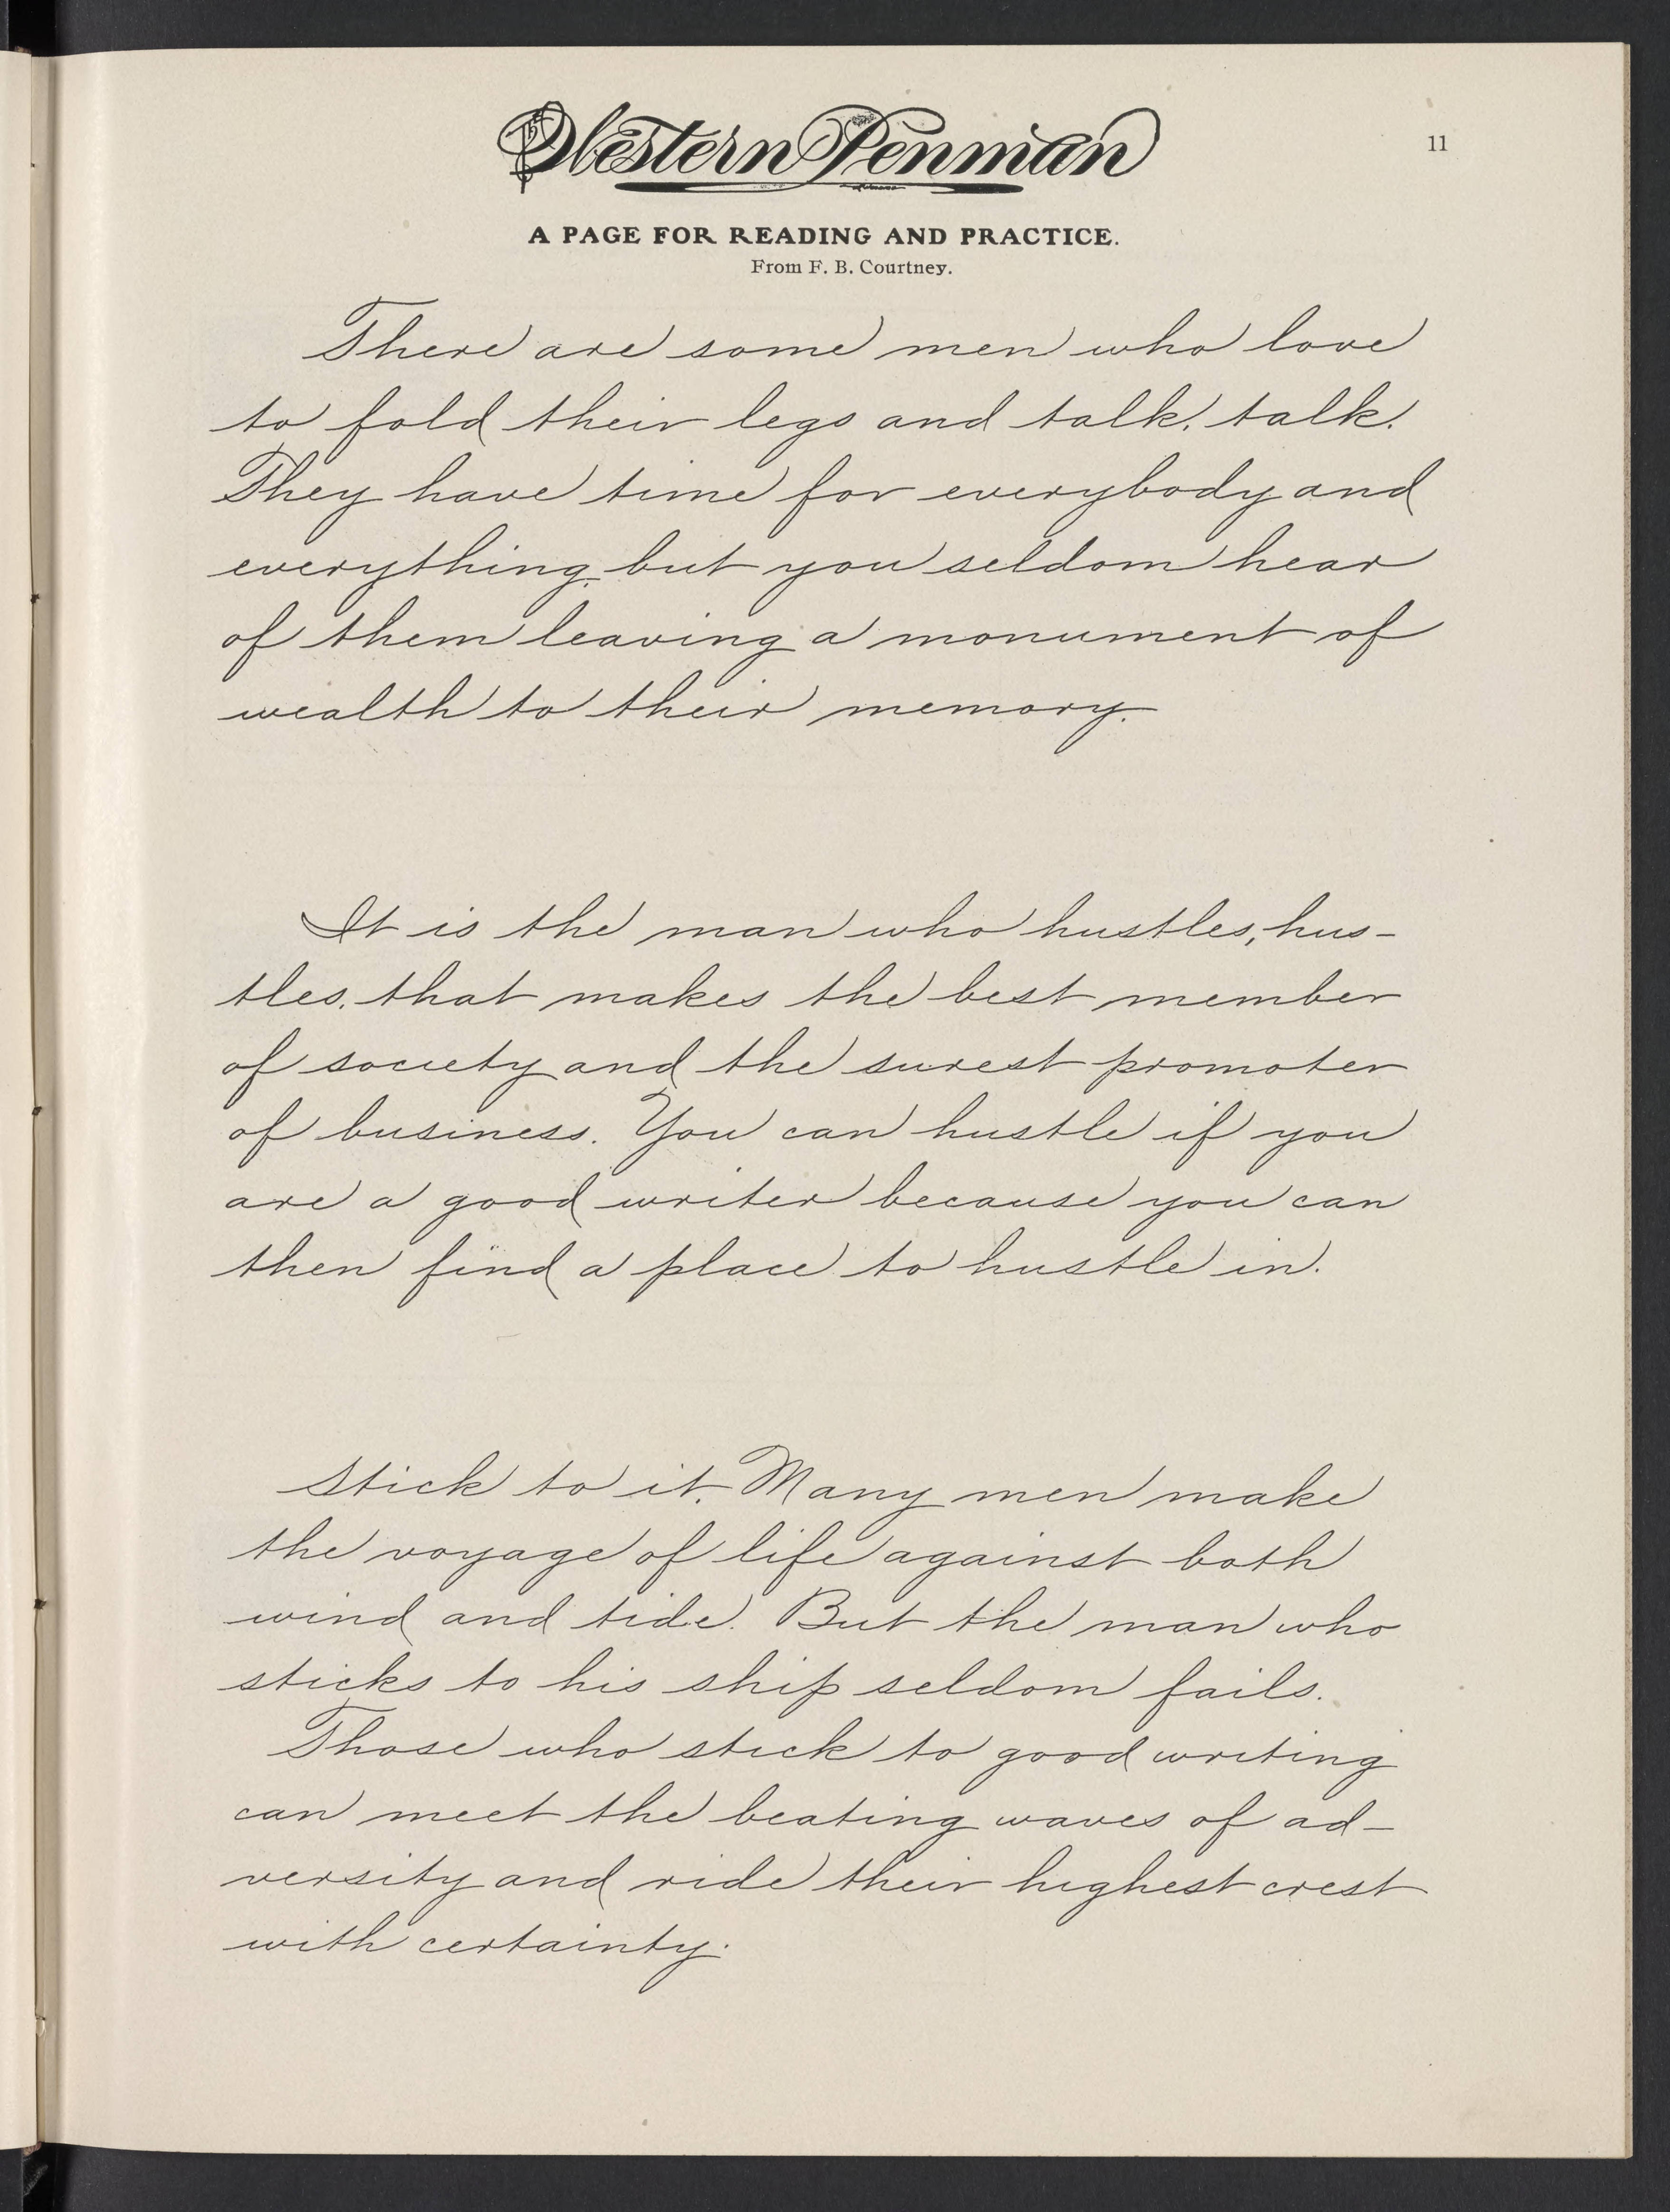 Western Penman
11
A PAGE FOR READING AND PRACTICE.
From F. B. Courtney.
There are some men who love
to fold their legs and talk, talk.
They have time for everybody and
everything, but you seldom hear
of them leaving a monument of
wealth to their memory.
It is the man who hustles, hus-
tles, that makes the best member
of society and the surest promoter
of business. You can hustle if you
are a good writer because you can
then find a place to hustle in.
Stick to it. Many men make
the voyage of life against both
wind and tide. But the man who
sticks to his ship seldom fails.
Those who stick to good writing
can meet the beating waves of ad-
versity and ride their highest crest
with certainty.